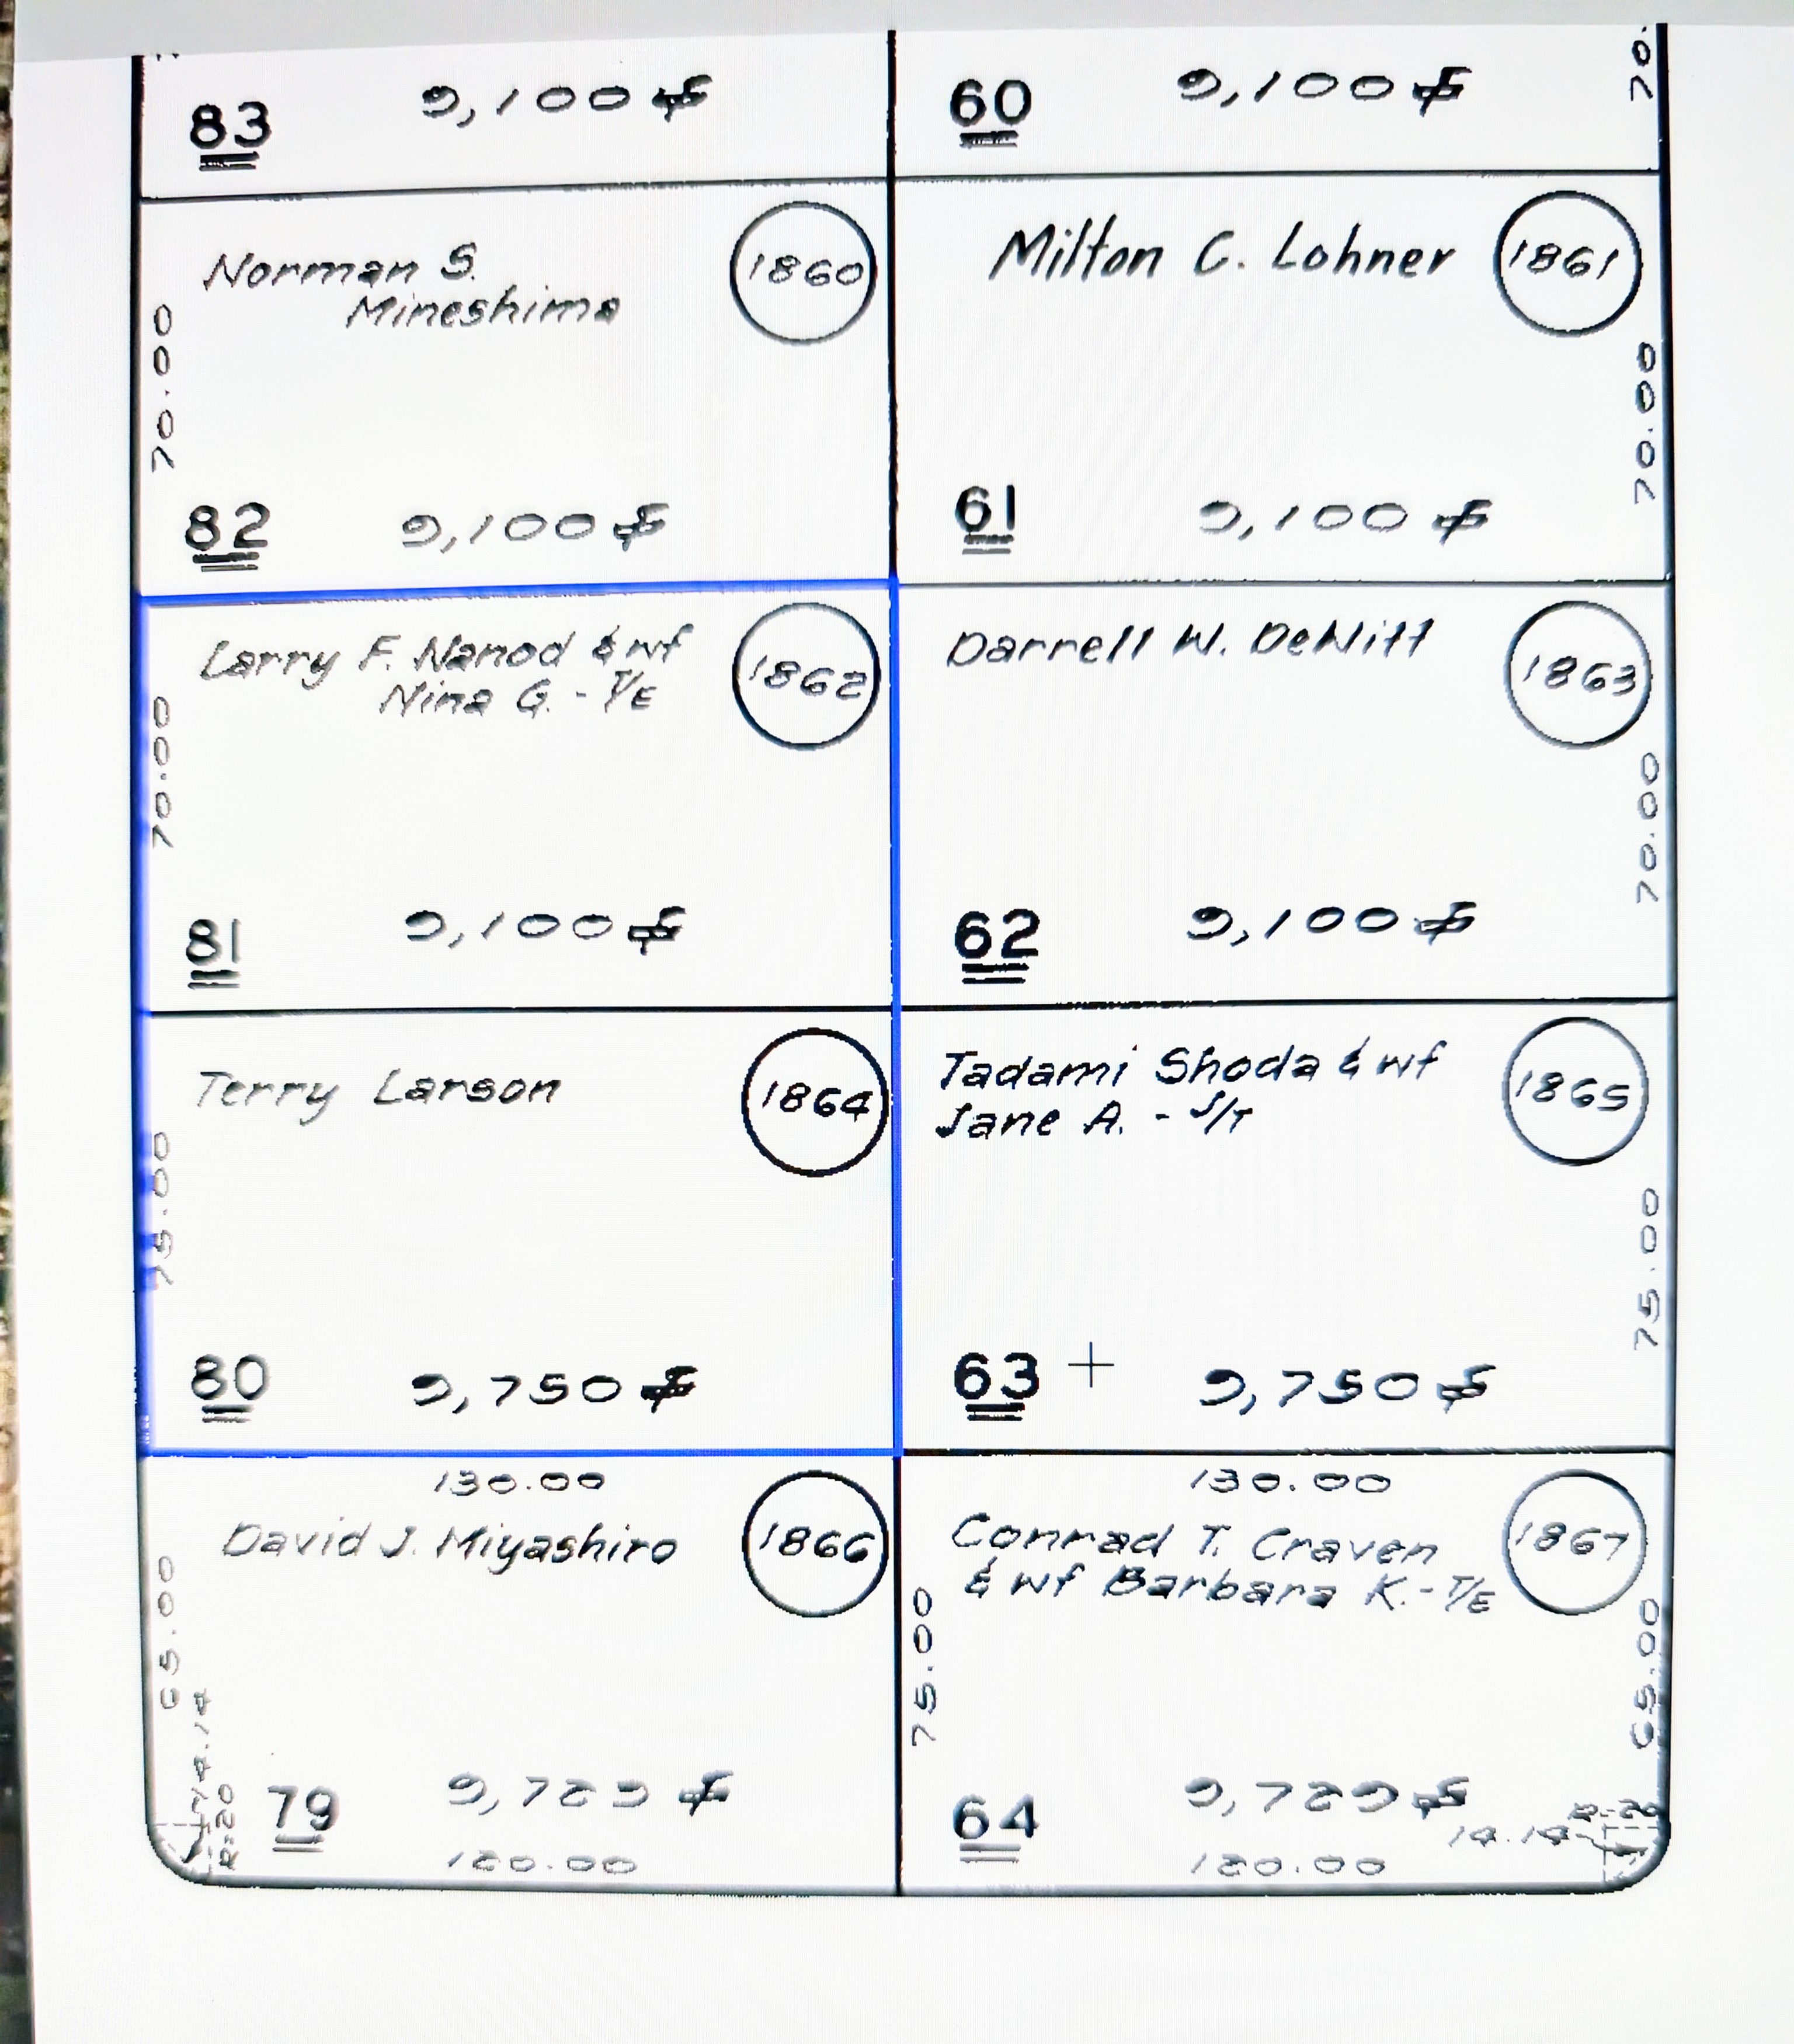 83 9,100 ⌗
60 9,100 ⌗
70.
Norman S.
Mineshima
1860
70.00
82 9,100 ⌗
Milton C. Lohner
1861
70.00
61 9,100 ⌗
Larry F. Nanod & wf
Nina G. - T/E
1862
70.00
81 9,100 ⌗
Darrell W. DeWitt
1863
70.00
62 9,100 ⌗
Terry Larson
1864
75.00
80 9,750 ⌗
Tadami Shoda & wf
Jane A. - J/T
1865
75.00
63 9,750 ⌗
130.00
David J. Miyashiro
1866
65.00
14.14
R=20
79 9,729 ⌗
120.00
130.00
Conrad T. Craven
& wf Barbara K. - T/E
1867
75.00
65.00
64 9,729 ⌗
R=20
14.14
120.00